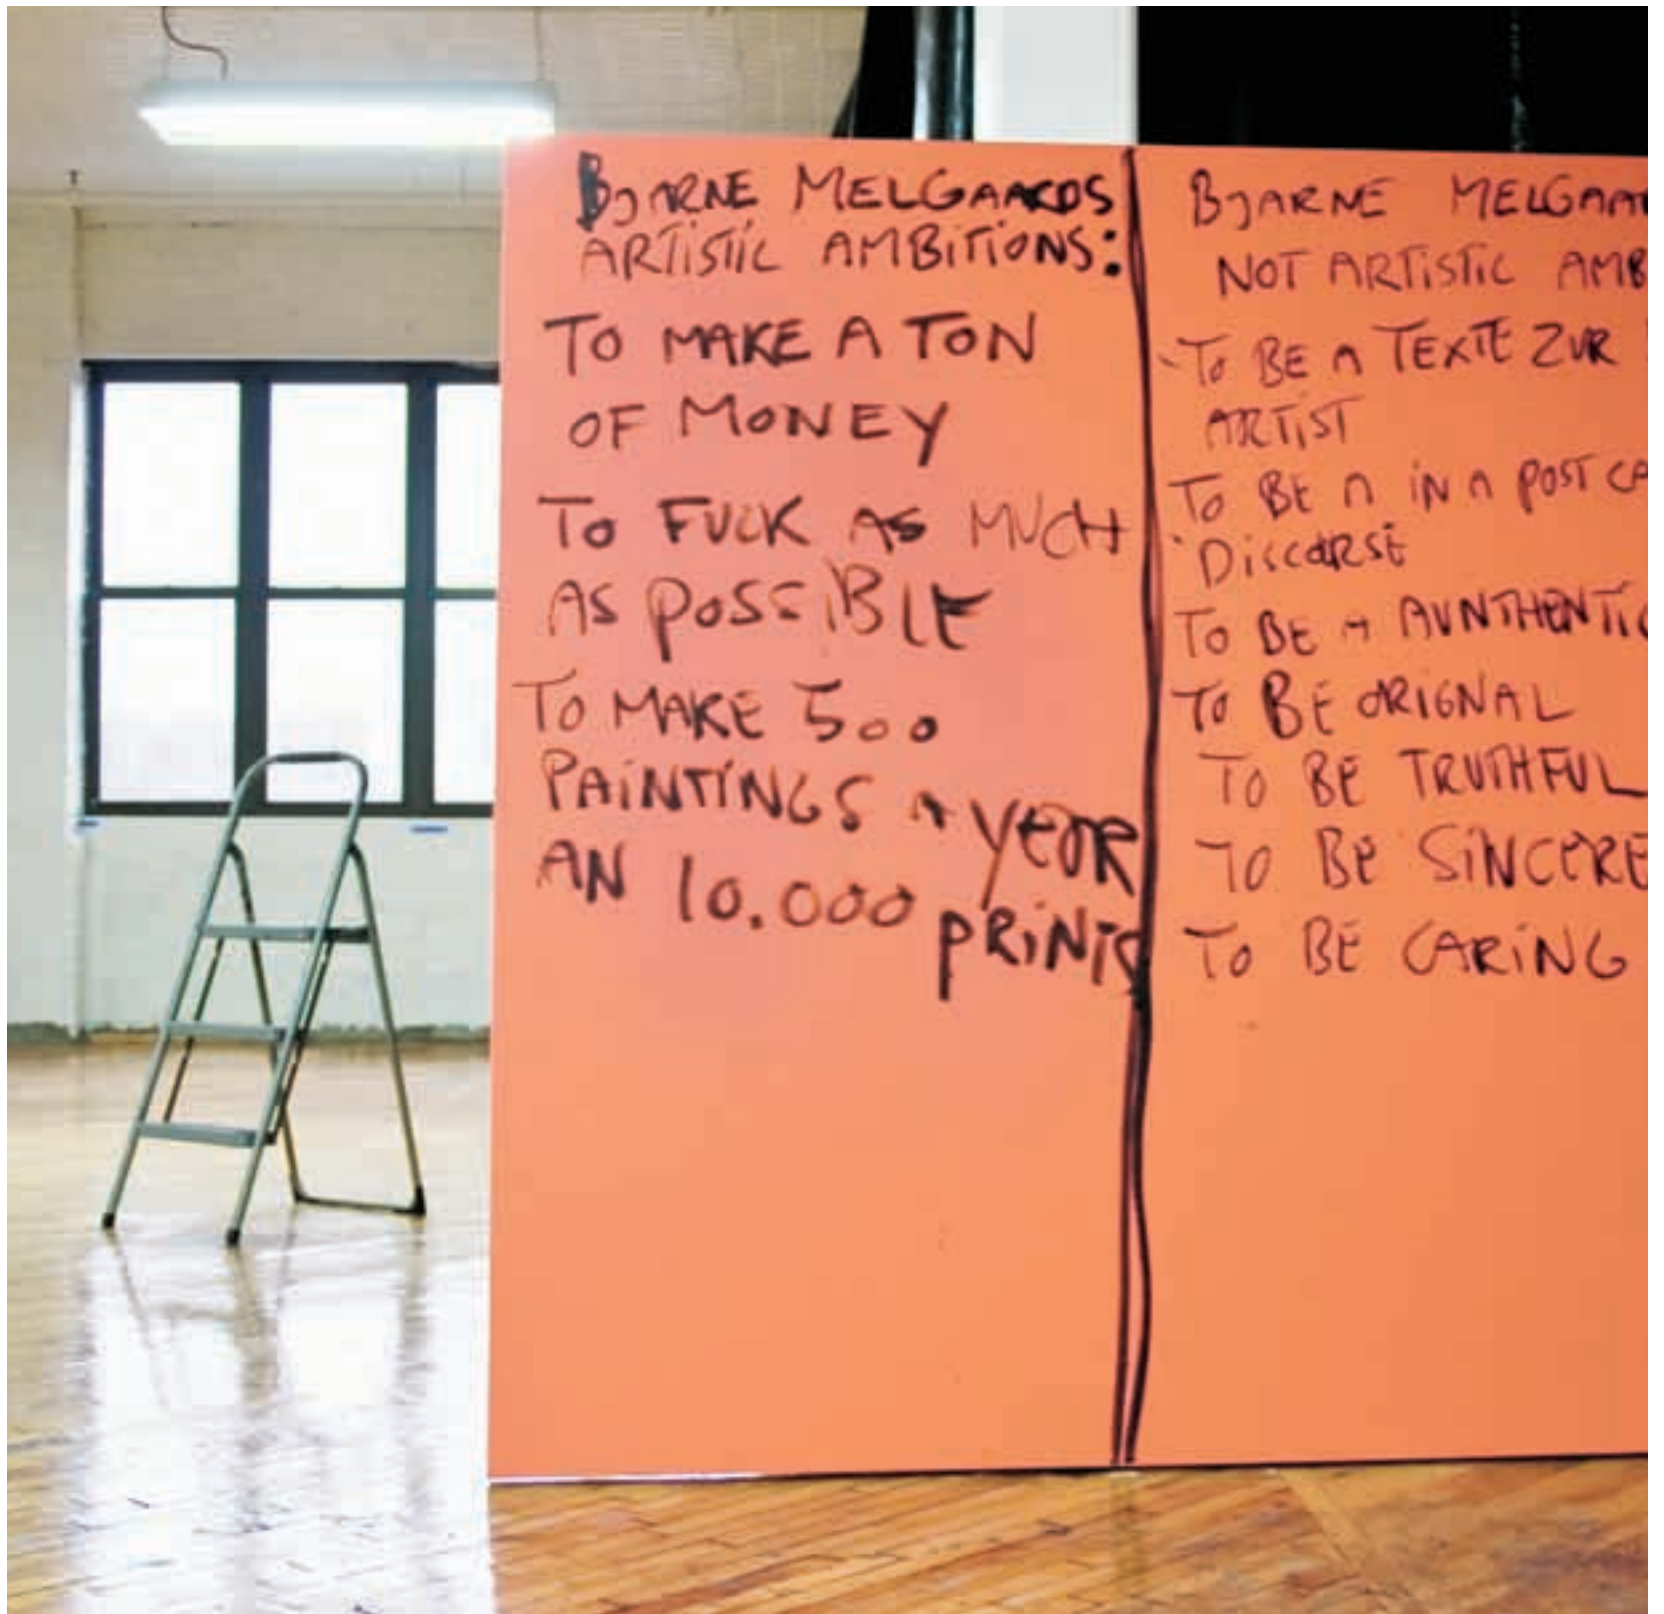 BJARNE MELGAARDS
ARTISTIC AMBITIONS:
TO MAKE A TON
OF MONEY
TO FUCK AS MUCH
AS POSSIBLE
TO MAKE 500
PAINTINGS A YEAR
AN 10.000 PRINTS
BJARNE MELGAA
NOT ARTISTIC AMB
TO BE A TEXTE ZUR
ARTIST
TO BE A IN A POST CA
DISCORSE
TO BE A AUNTHENTIC
TO BE ORIGNAL
TO BE TRUTHFUL
TO BE SINCERE
TO BE CARING